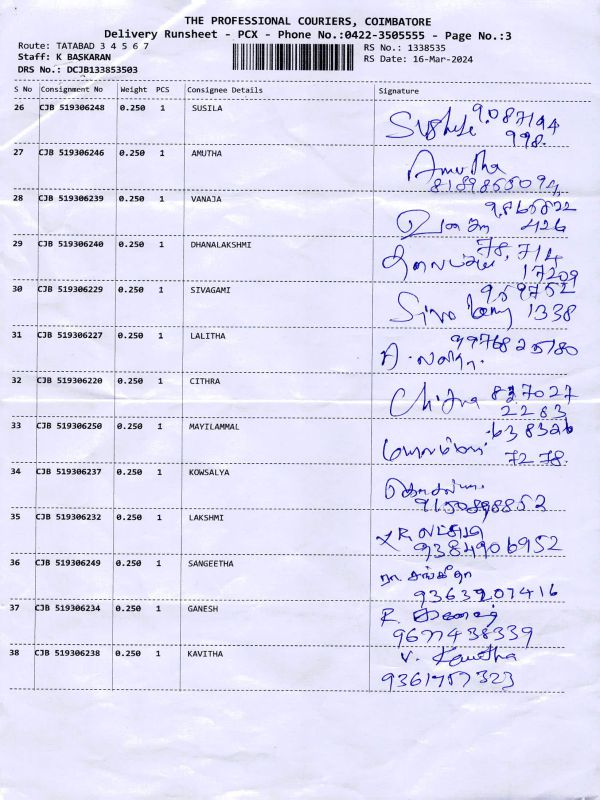 THE PROFESSIONAL COURIERS, COIMBATORE
Delivery Runsheet - PCX - Phone No.:0422-3505555 - Page No.:3
Route: TATABAD 3 4 5 6 7
RS No.: 1338535
Staff: K BASKARAN
RS Date: 16-Mar-2024
DRS No.: DCJB133853503
S No Consignment No Weight PCS Consignee Details Signature
26 CJB 519306248 0.250 1 SUSILA
27 CJB 519306246 0.250 1 AMUTHA Amutha
28 CJB 519306239 0.250 1 VANAJA
426
29 CJB 519306240 0.250 1 DHANALAKSHMI 78,714
17209
30 CJB 519306229 0.250 1 SIVAGAMI 959752
1338
31 CJB 519306227 0.250 1 LALITHA
32 CJB 519306220 0.250 1 CITHRA Chitra 827027
2263
33 CJB 519306250 0.250 1 MAYILAMMAL 638326
7278.
34 CJB 519306237 0.250 1 KOWSALYA
35 CJB 519306232 0.250 1 LAKSHMI
9384906952
36 CJB 519306249 0.250 1 SANGEETHA ரா. சங்கீதா
9363207416
37 CJB 519306234 0.250 1 GANESH
9677438339
38 CJB 519306238 0.250 1 KAVITHA V. Kavitha
9361757323